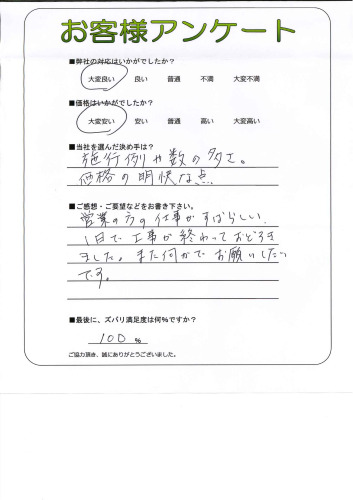 お客様アンケート
■弊社の対応はいかがでしたか？
大変良い 良い 普通 不満 大変不満
■価格はいかがでしたか？
大変安い 安い 普通 高い 大変高い
■当社を選んだ決め手は？
施行例や数の多さ。
価格の明快な点
■ご感想・ご要望などをお書き下さい。
営業の方の仕事がすばらしい.
1日で工事が終わっておどろき
ました。また何かでお願いしたい
です。
■最後に、ズバリ満足度は何%ですか？
100 %
ご協力頂き、誠にありがとうございました。